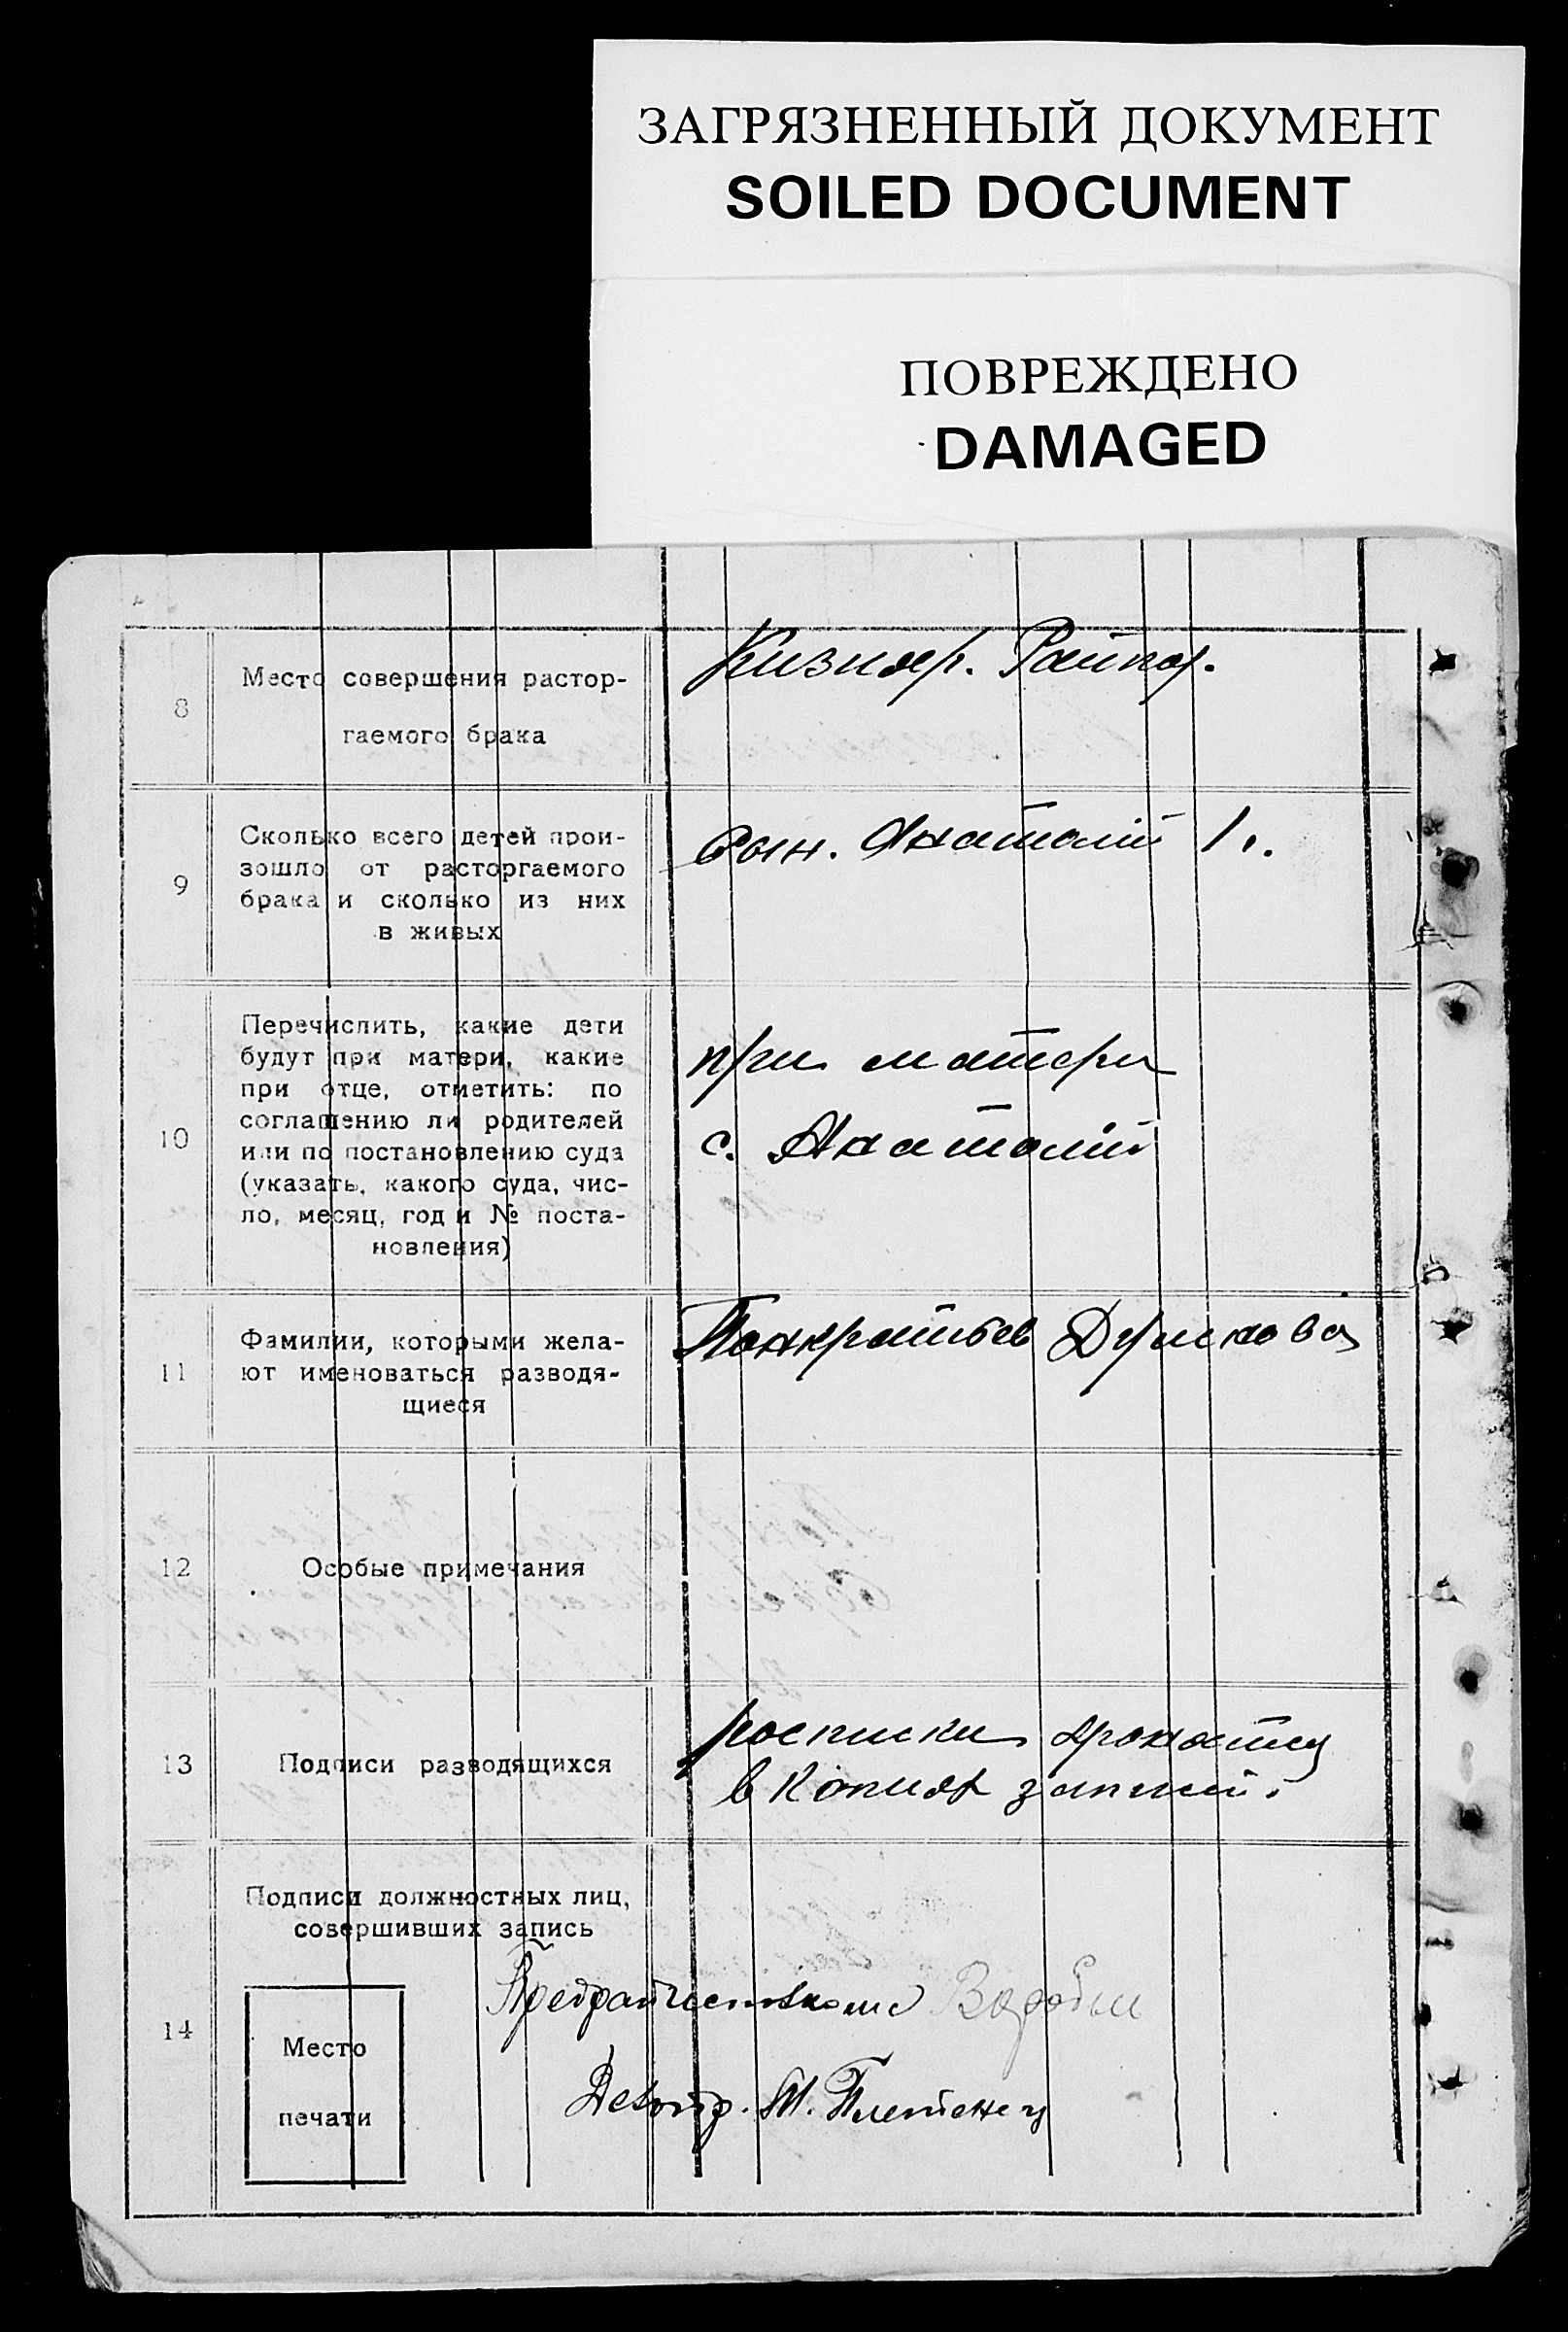 ЗАГРЯЗНЕННЫЙ ДОКУМЕНТ
SOILED DOCUMENT
ПОВРЕЖДЕНО
DAMAGED
8
Место совершения растор-
гаемого брака
Кизляр.
9
Сколько всего детей прои-
зошло от расторгаемого
брака и сколько из них
в живых
Сын. Анатолий 1 г.
10
Перечислить, какие дети
будут при матери, какие
при отце, отметить: по
соглашению ли родителей
или по постановлению суда
(указать, какого суда, чис-
ло, месяц, год и № поста-
новления)
при матери
с. Анатолий
11
Фамилии, которыми жела-
ют именоваться разводя-
щиеся
Панкратьев
12
Особые примечания
13
Подписи разводящихся
росписки
в копиях записи.
14
Подписи должностных лиц,
совершивших запись
Место
печати